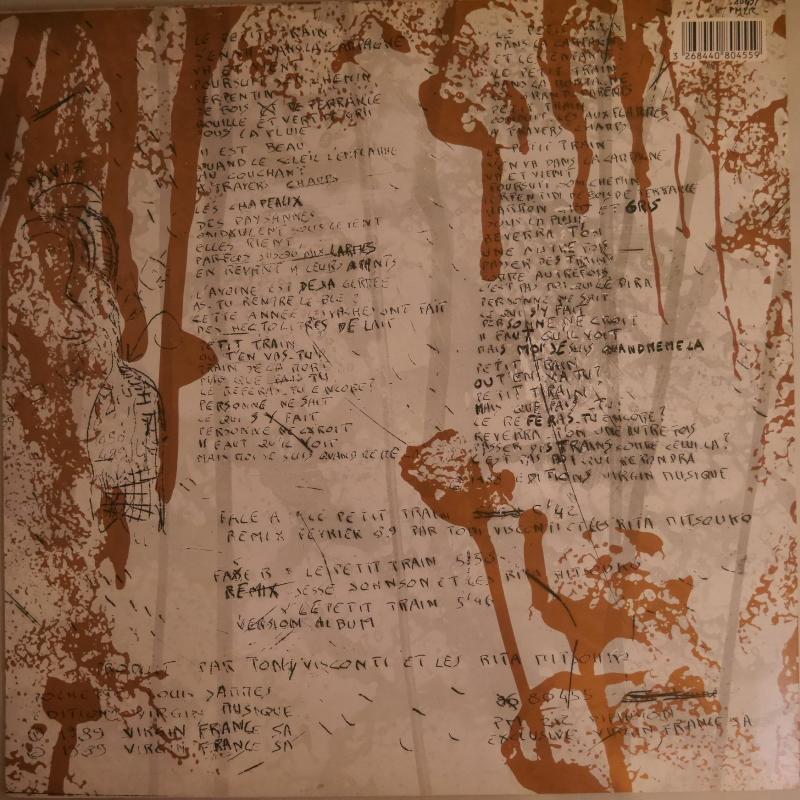 LE PETIT TRAIN
S'EN VA DANS LA CAMPAGNE
VA ET VIENT
POURSUIT SON CHEMIN
SERPENTIN
DE BOIS ET DE FERRAILLE
ROUILLE ET VERT DE GRIS
SOUS LA PLUIE
IL EST BEAU
QUAND LE SOLEIL L'ENFLAMME
AU COUCHANT
A TRAVERS CHAMPS
LES CHAPEAUX
DES PAYSANNES
ONDULENT SOUS LE VENT
ELLES RIENT
PARFOIS JUSQU'AUX LARMES
EN REVANT A LEURS AMANTS
L'AVOINE EST DEJA GERMEE
AS-TU RENTRE LE BLE ?
CETTE ANNEE LES VACHES ONT FAIT
DES HECTOLITRES DE LAIT
PETIT TRAIN
OU T'EN VAS-TU
TRAIN DE LA MORT
MAIS QUE FAIS-TU
LE REFERAS-TU ENCORE ?
PERSONNE NE SAIT
CE QUI S'Y FAIT
PERSONNE NE CROIT
IL FAUT QU'IL VOIT
MAIS MOI JE SUIS QUAND MEME LA
LE PETIT TRAIN
DANS LA CAMPAGNE
ET LES ENFANTS
LE PETIT TRAIN
DANS LA MONTAGNE
LES GRANDS PARENTS
PETIT TRAIN
CONDUIT LES AUX FLAMMES
A TRAVERS CHAMPS
LE PETIT TRAIN
S'EN VA DANS LA CAMPAGNE
VA ET VIENT
POURSUIT SON CHEMIN
SERPENTIN DE BOIS DE FERRAILLE
MARRON ET GRIS
SOUS LA PLUIE
REVERRA TON
UNE AUTRE FOIS
PASSER DES TRAINS
COMME AUTREFOIS
C'EST PAS MOI QUI LE DIRA
PERSONNE NE SAIT
CE QUI S'Y FAIT
PERSONNE NE CROIT
IL FAUT QU'IL VOIT
MAIS MOI JE SUIS QUAND MEME LA
PETIT TRAIN
OU T'EN VA TU ?
PETIT TRAIN
MAIS QUE FAIS-TU ?
LE REFERAS-TU ENCORE ?
REVERRA-T'ON UNE AUTRE FOIS
PASSER DES TRAINS COMME CELUI-LA ?
C'EST PAS MOI QUI REPONDRA
EDITIONS VIRGIN MUSIQUE
3 268440 804559
FACE A LE PETIT TRAIN 5'42
REMIX FEVRIER 89 PAR TONI VISCONTI ET LES RITA MITSOUKO
FACE B LE PETIT TRAIN
REMIX JESSE JOHNSON ET LES RITA MITSOUKO
LE PETIT TRAIN
VERSION ALBUM
PRODUIT PAR TONY VISCONTI ET LES RITA MITSOUKO
EDITIONS VIRGIN MUSIQUE
℗ 1989 VIRGIN FRANCE SA
© 1989 VIRGIN FRANCE SA
80455
EXCLUSIVE VIRGIN FRANCE SA